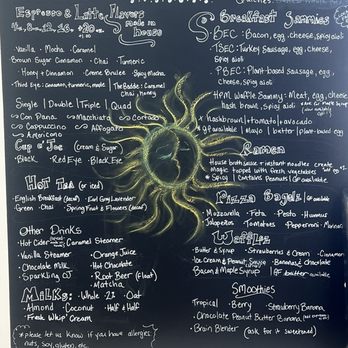 Espresso & Latte Flavors
made in house
4oz, 8oz, 12oz, 16oz, +20oz
Vanilla · Mocha · Caramel
Brown Sugar Cinnamon · Chai · Turmeric
· Honey + Cinnamon · Creme Brulee · Spicy Mocha
· Third Eye: cinnamon, turmeric, maple
The Baddie: Caramel Chai, honey
Single | Double | Triple | Quad
~ Con Pana ~ Macchiato ~ Cortado
~ Cappuccino ~ Affogato
~ Americano
Cup o' Joe (cream & sugar)
· Black · Red Eye · Black Eye
Hot Tea (or iced)
English Breakfast (decaf) · Earl Grey Lavender
· Green · Chai · Spring Fruit & Flowers (decaf)
Other Drinks
· Hot Cider · Caramel Steamer
· Vanilla Steamer · Orange Juice
· Chocolate Milk · Hot Chocolate
· Sparkling OJ · Root Beer (Float)
· Matcha
Milks: Whole · 2% · Oat
· Almond · Coconut · Half & Half
· Fresh Whip' Cream
* please let us know if you have allergies:
nuts, soy, gluten, etc.
Breakfast Sammies
· BEC: Bacon, egg, cheese, spicy aioli
· TSEC: Turkey Sausage, egg, cheese,
spicy aioli
· PBEC: Plant-based sausage, egg,
cheese, spicy aioli
· HPM Waffle Sammy: Meat, egg, cheese,
hash brown, spicy aioli
+ hashbrown | tomato | avocado
gf available | Mayo | butter | plant-based egg
Ramen
House broth + instant noodles create
magic topped with fresh vegetables
* Spicy | Contains Peanuts
Pizza Bagelz
· Mozzarella · Feta · Pesto · Hummus
· Jalapeños · Tomatoes · Pepperoni
Waffles
· Butter & Syrup · Strawberries & Cream · Cinnamon
· Bacon & Maple Syrup
Smoothies
Tropical · Berry · Strawberry Banana
· Chocolate Peanut Butter Banana
· Brain Blender (ask for it sweetened)